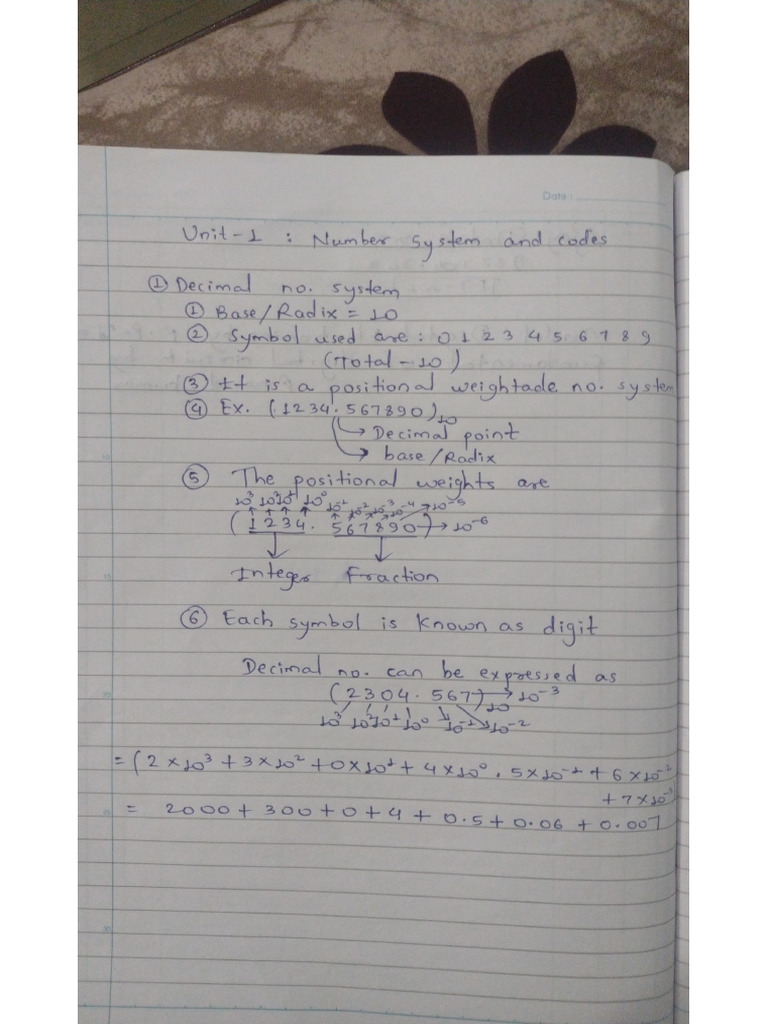 Date :
Unit-1 : Number system and codes
① Decimal no. system
① Base/Radix = 10
② Symbol used are : 0 1 2 3 4 5 6 7 8 9
(Total - 10)
③ It is a positional weightade no. system
④ Ex. (1234.567890)₁₀
→ Decimal point
→ base/Radix
⑤ The positional weights are
10³ 10² 10¹ 10⁰ 10⁻¹ 10⁻² 10⁻³ 10⁻⁴ → 10⁻⁵
(1234.567890) → 10⁻⁶
Integer Fraction
⑥ Each symbol is known as digit
Decimal no. can be expressed as
(2304.567)₁₀ → 10⁻³
10³ 10² 10¹ 10⁰ 10⁻¹ 10⁻²
= (2×10³ + 3×10² + 0×10¹ + 4×10⁰ . 5×10⁻¹ + 6×10⁻²
+ 7×10⁻³
= 2000 + 300 + 0 + 4 + 0.5 + 0.06 + 0.007